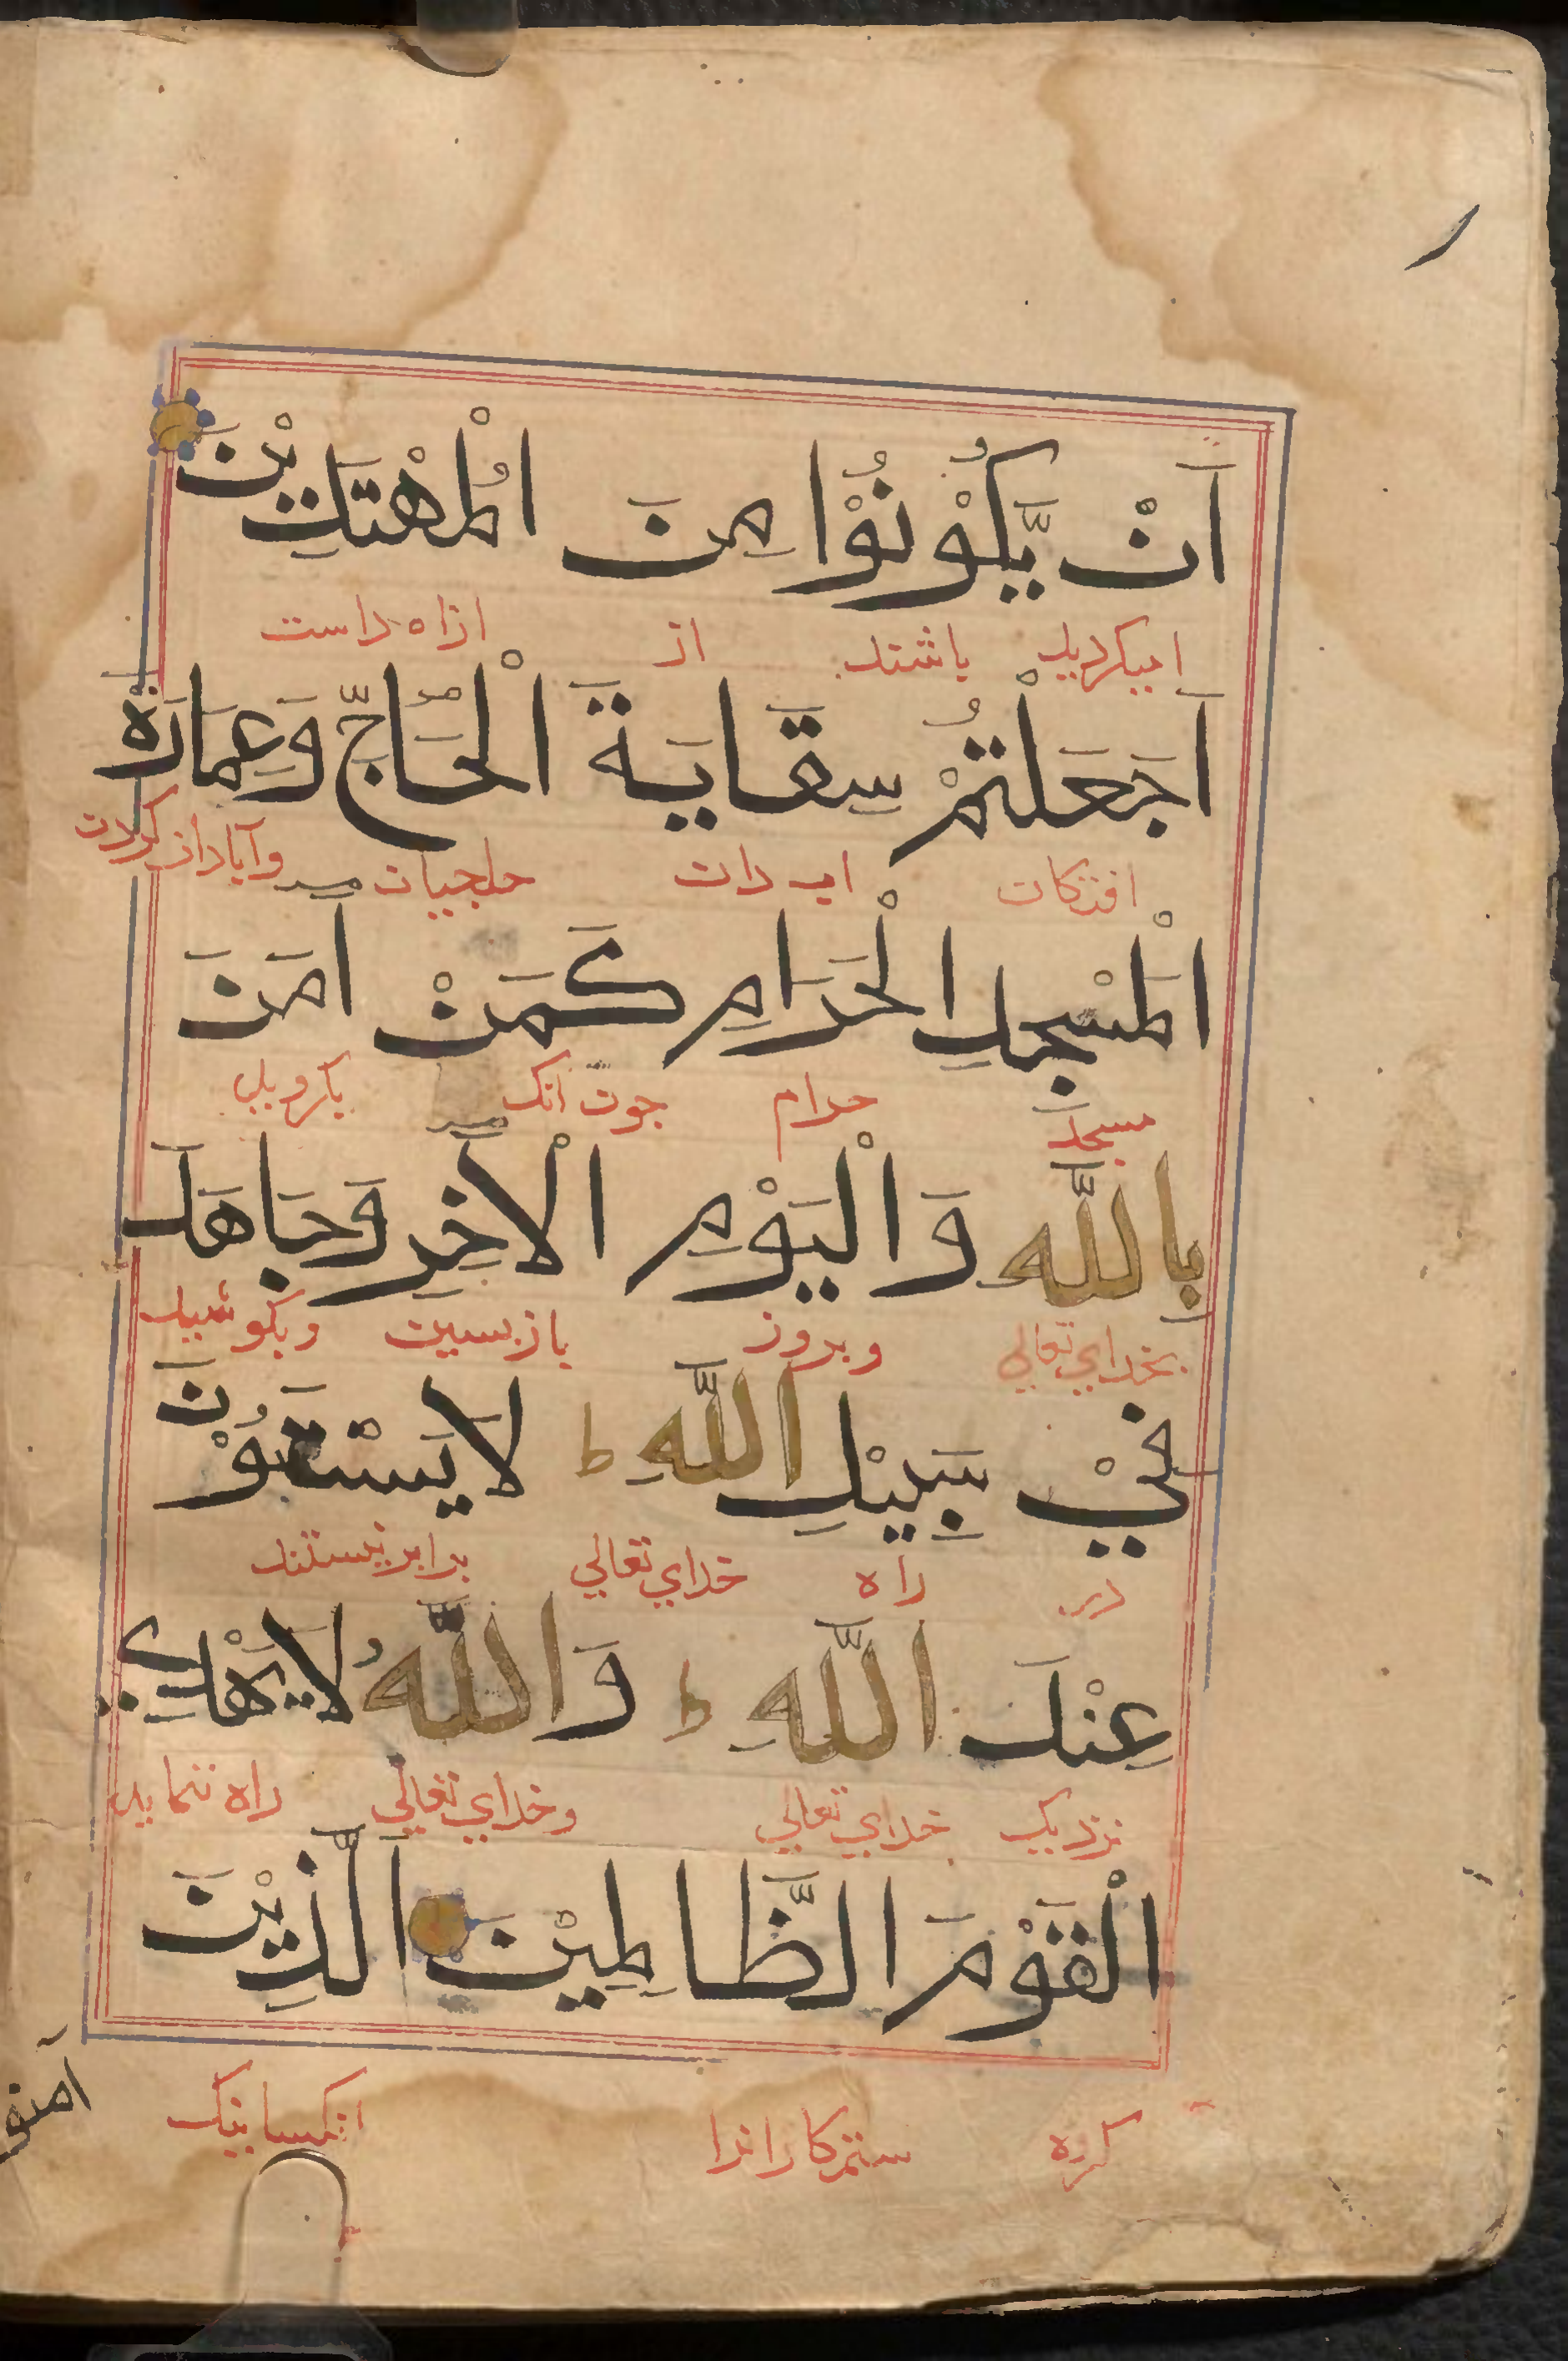 اَنْ يَّكُوْنُوْا مِنَ الْمُهْتَدِيْنَ
باشند از
اَجَعَلْتُمْ سِقَايَةَ الْحَاجِّ وَعِمَارَةَ
اب دان حاجيان وآبادان كردن
الْمَسْجِدِ الْحَرَامِ كَمَنْ اٰمَنَ
مسجد حرام جون انك بكرويد
بِاللّٰهِ وَالْيَوْمِ الْاٰخِرِ وَجَاهَدَ
بخداي تعالي وبروز بازبسين وبكوشيد
فِيْ سَبِيْلِ اللّٰهِ ط لَا يَسْتَوٗنَ
در راه خداي تعالي برابر نيستند
عِنْدَ اللّٰهِ ط وَاللّٰهُ لَا يَهْدِي
نزديك خداي تعالي وخداي تعالي راه ننمايد
الْقَوْمَ الظَّالِمِيْنَ الَّذِيْنَ
كروه ستمكارانرا انكسانيك
آمنو